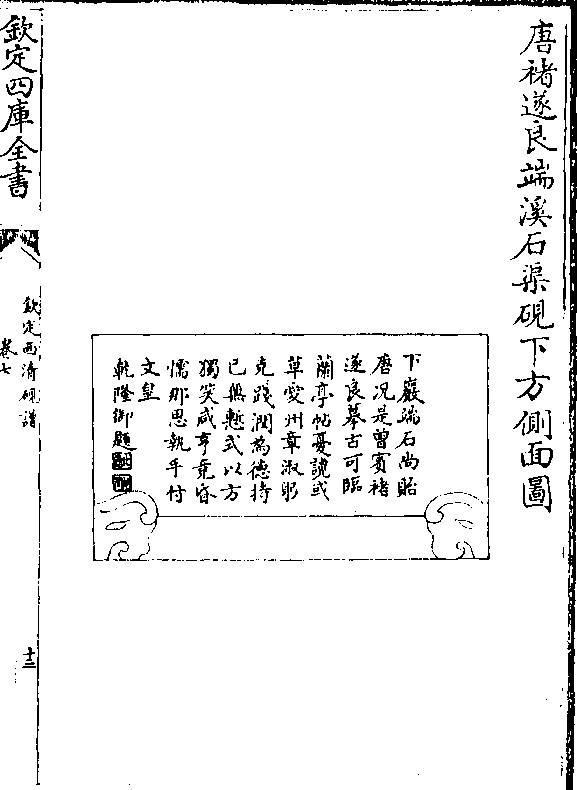 唐褚遂良端溪石渠硯下方側面圖
下巖端石尚貽
唐況是曾賓褚
遂良摹古可臨
蘭亭帖憂讒或
草愛州章淑躬
克踐潤為德持
己無慙式以方
獨笑咸亨竟昏
懦那思執手付
文皇
乾隆御題
欽定四庫全書
欽定西清硯譜
卷七
十三